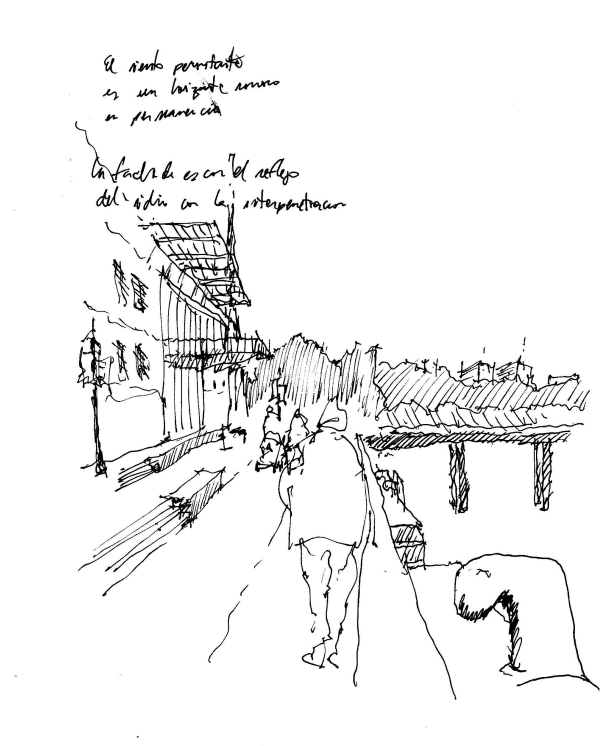 El viento permitante
es un horizonte sonoro
en permanencia
la fachada es con el reflejo
del vidrio con la interpenetracion